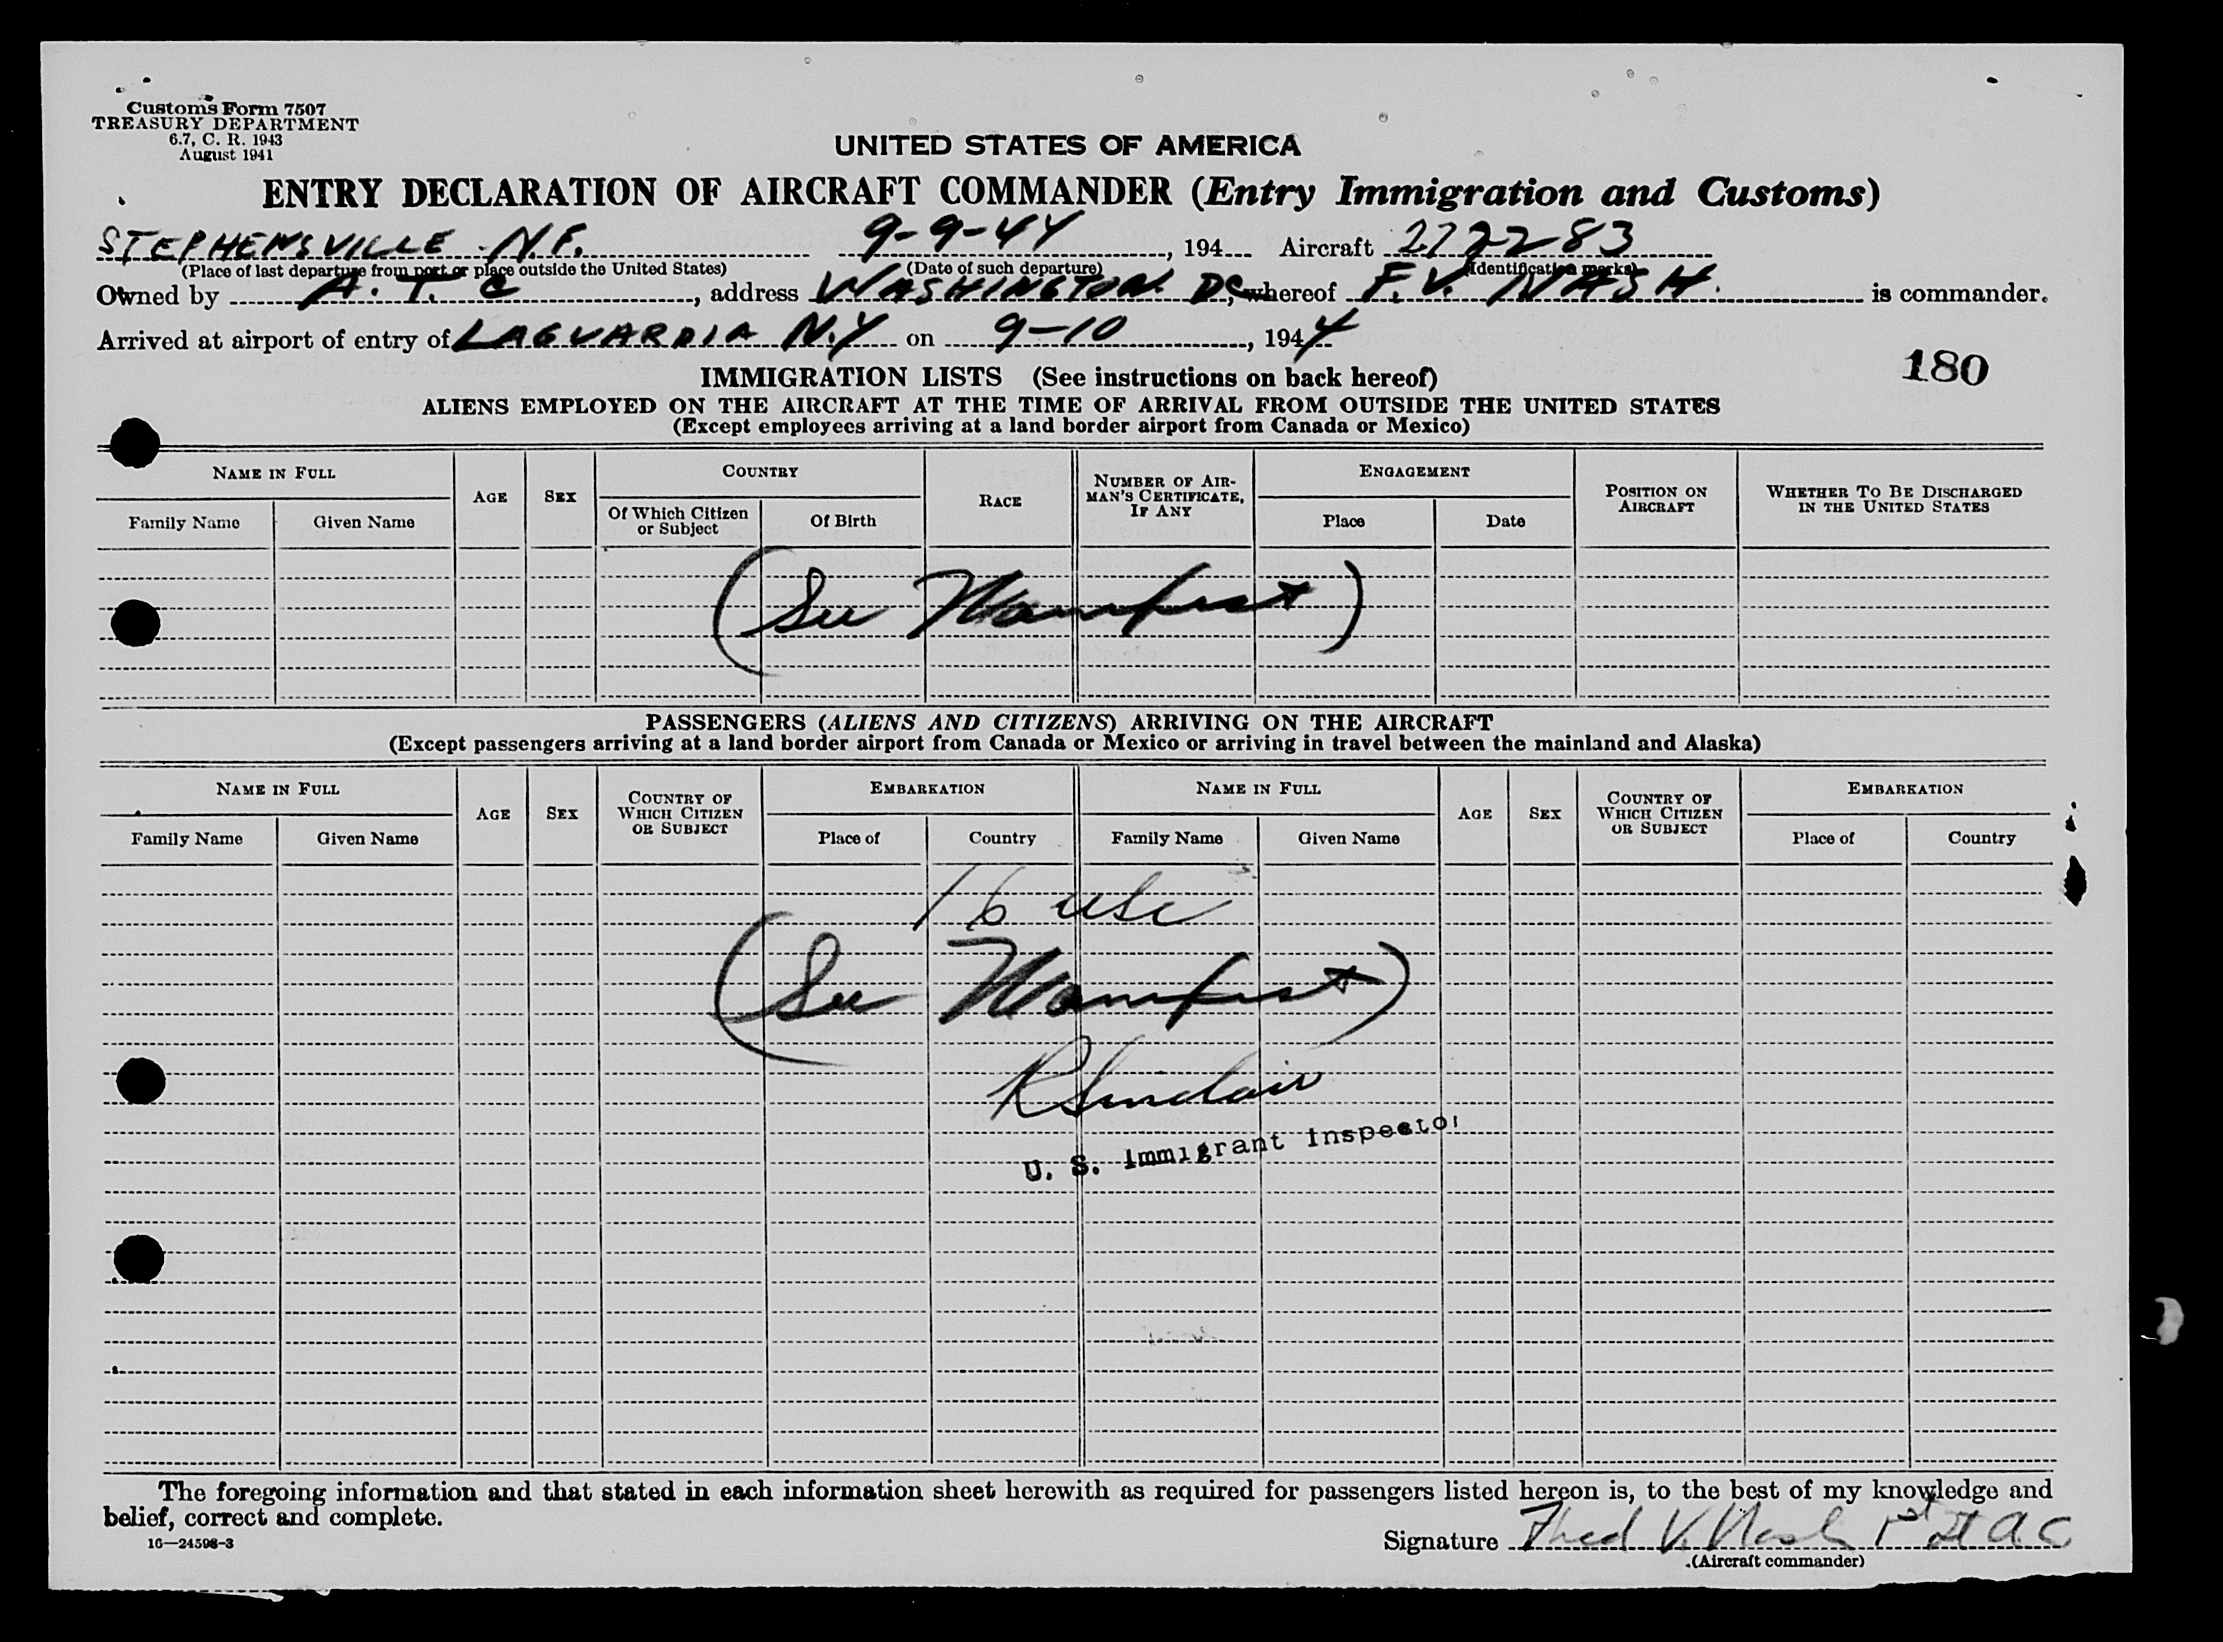 Customs Form 7507
TREASURY DEPARTMENT
6.7, C. R. 1943
August 1941
UNITED STATES OF AMERICA
ENTRY DECLARATION OF AIRCRAFT COMMANDER (Entry Immigration and Customs)
STEPHENSVILLE N.F. 9-9-44, 194 Aircraft 272283
(Place of last departure from port or place outside the United States) (Date of such departure) (Identification marks)
Owned by A. T. C, address WASHINGTON DC, whereof F. V. NASH. is commander.
Arrived at airport of entry of LAGUARDIA N.Y on 9-10, 1944
180
IMMIGRATION LISTS (See instructions on back hereof)
ALIENS EMPLOYED ON THE AIRCRAFT AT THE TIME OF ARRIVAL FROM OUTSIDE THE UNITED STATES
(Except employees arriving at a land border airport from Canada or Mexico)
NAME IN FULL AGE SEX COUNTRY RACE NUMBER OF AIRMAN'S CERTIFICATE, IF ANY ENGAGEMENT POSITION ON AIRCRAFT WHETHER TO BE DISCHARGED IN THE UNITED STATES
Family Name Given Name Of Which Citizen or Subject Of Birth Place Date
(See Manifest)
PASSENGERS (ALIENS AND CITIZENS) ARRIVING ON THE AIRCRAFT
(Except passengers arriving at a land border airport from Canada or Mexico or arriving in travel between the mainland and Alaska)
NAME IN FULL AGE SEX COUNTRY OF WHICH CITIZEN OR SUBJECT EMBARKATION NAME IN FULL AGE SEX COUNTRY OF WHICH CITIZEN OR SUBJECT EMBARKATION
Family Name Given Name Place of Country Family Name Given Name Place of Country
16 usc
(See Manifest)
R Sinclair
U. S. Immigrant Inspector
The foregoing information and that stated in each information sheet herewith as required for passengers listed hereon is, to the best of my knowledge and
belief, correct and complete.
16—24598-3
Signature Fred V. Nash 1st Lt A C
(Aircraft commander)